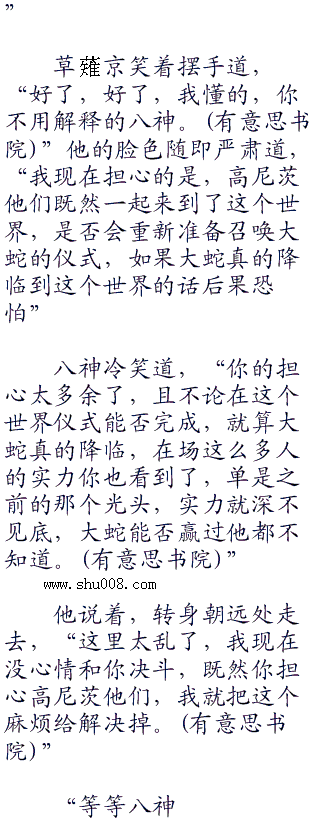 ”
草薙京笑着摆手道，
“好了，好了，我懂的，你
不用解释的八神。(有意思书
院)”他的脸色随即严肃道，
“我现在担心的是，高尼茨
他们既然一起来到了这个世
界，是否会重新准备召唤大
蛇的仪式，如果大蛇真的降
临到这个世界的话后果恐
怕”
八神冷笑道，“你的担
心太多余了，且不论在这个
世界仪式能否完成，就算大
蛇真的降临，在场这么多人
的实力你也看到了，单是之
前的那个光头，实力就深不
见底，大蛇能否赢过他都不
知道。(有意思书院)”
www.shu008.com
他说着，转身朝远处走
去，“这里太乱了，我现在
没心情和你决斗，既然你担
心高尼茨他们，我就把这个
麻烦给解决掉。(有意思书
院)”
“等等八神